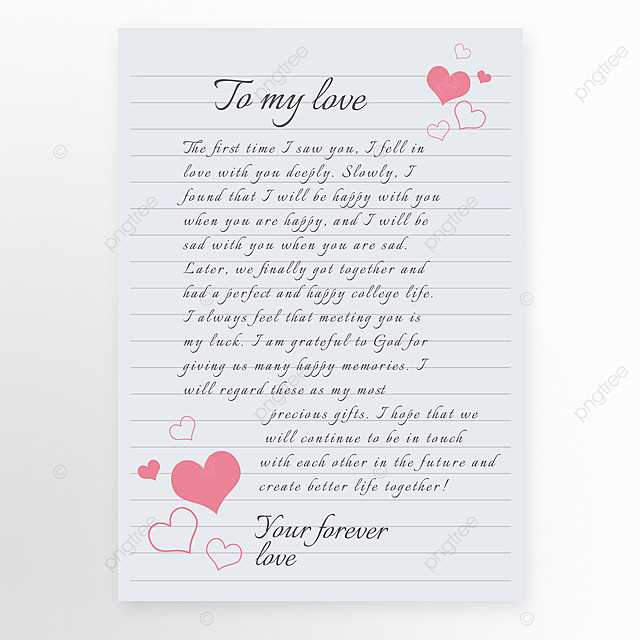 To my love
The first time I saw you, I fell in
love with you deeply. Slowly, I
found that I will be happy with you
when you are happy, and I will be
sad with you when you are sad.
Later, we finally got together and
had a perfect and happy college life.
I always feel that meeting you is
my luck. I am grateful to God for
giving us many happy memories. I
will regard these as my most
precious gifts. I hope that we
will continue to be in touch
with each other in the future and
create better life together!
Your forever
love
pngtree